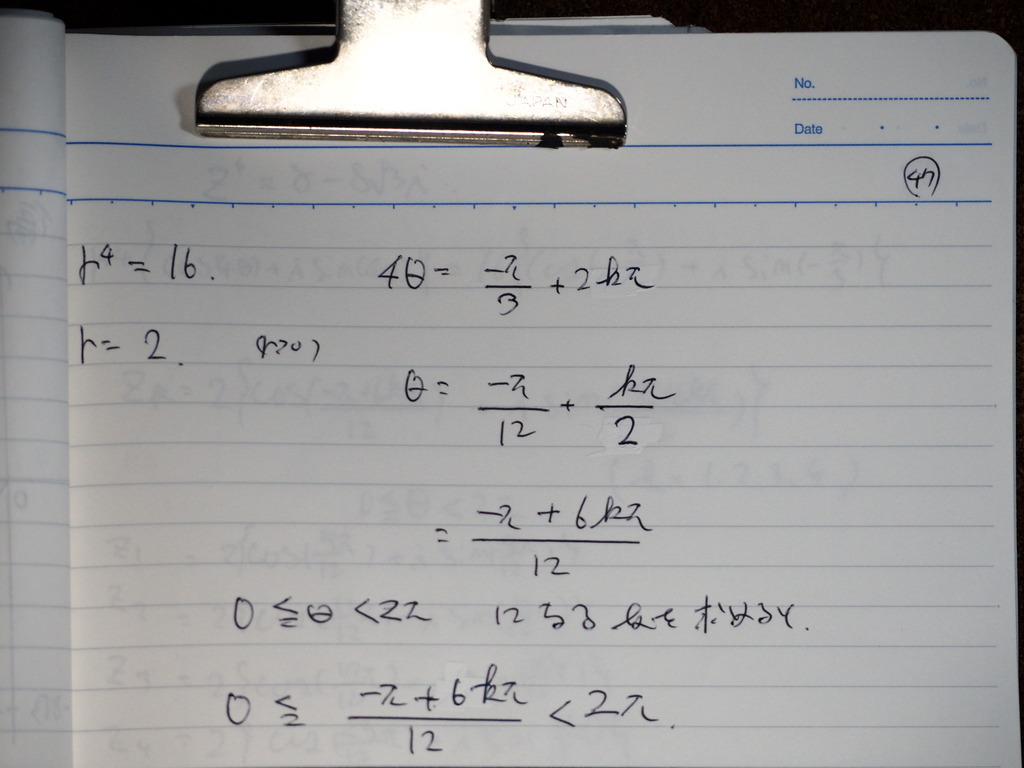 JAPAN
No.
Date
47
r⁴ = 16.    4θ = -π/3 + 2kπ
r = 2.    (r>0)
θ = -π/12 + kπ/2
= (-π + 6kπ)/12
0 ≦ θ < 2π  になる kを求めると.
0 ≦ (-π + 6kπ)/12 < 2π.